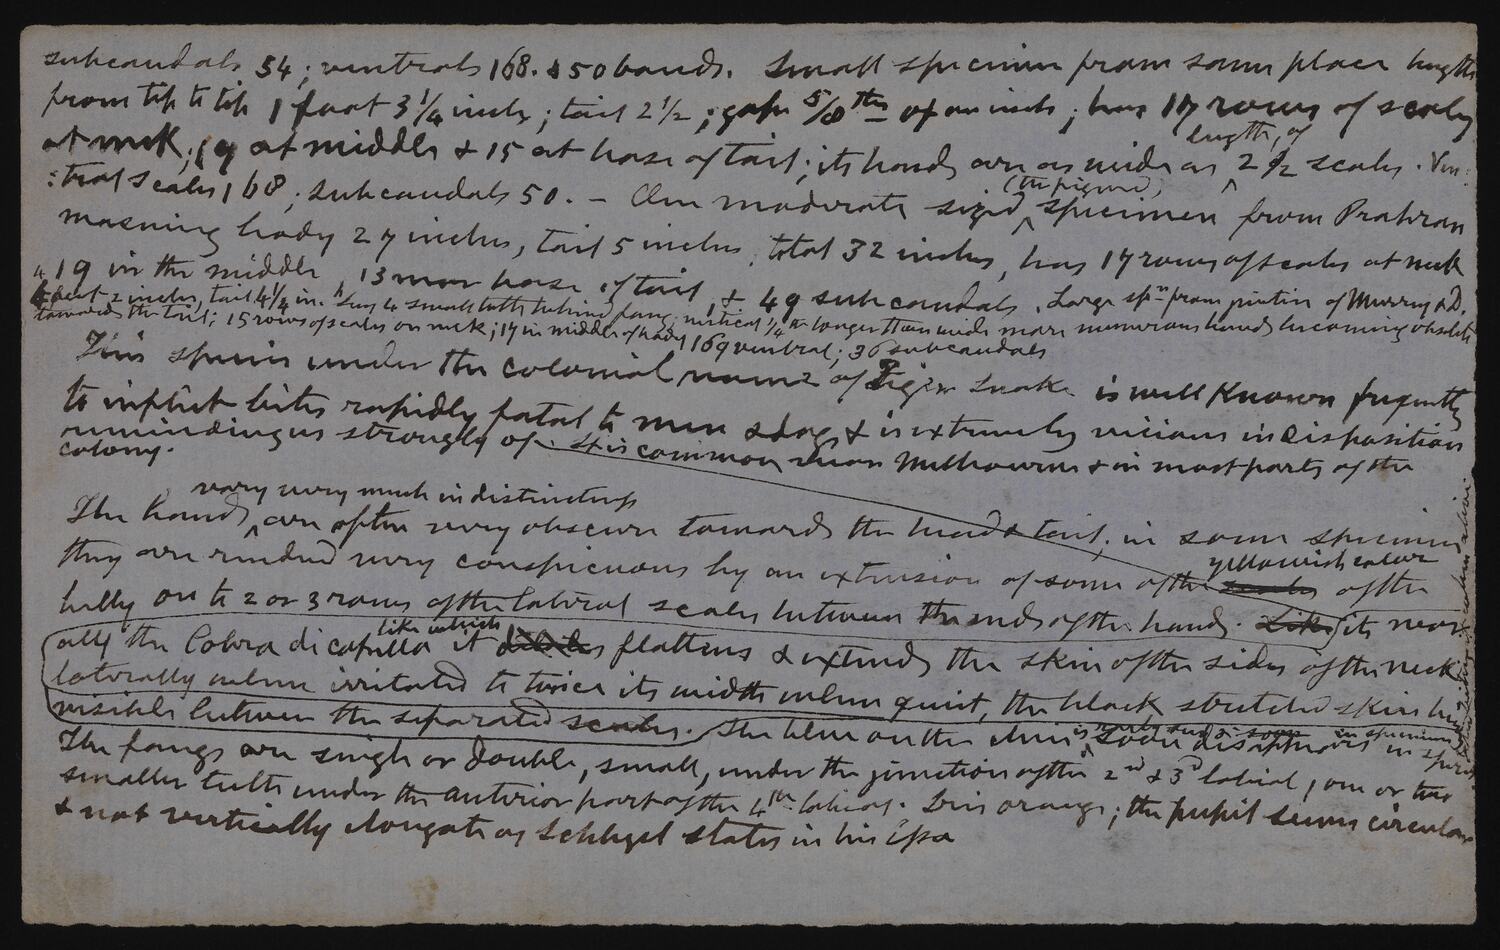 subcaudals 54; ventrals 168. & 50 bands. Small specimen from same place length
from tip to tip 1 foot 3 1/4 inches; tail 2 1/2; gape 5/8ths of an inch; has 17 rows of scales
at neck; 19 at middle & 15 at base of tail; its bands are as wide as length of 2 1/2 scales. Ven:
:tral scales 168; subcaudals 50. – One moderate sized (the figured) specimen from Prahran
measuring body 27 inches, tail 5 inches, total 32 inches, has 17 rows of scales at neck
19 in the middle, 13 near base of tail, & 49 subcaudals. Large spn from junction of Murray & D.
4 feet 2 inches, tail 4 1/4 in. has 4 small teeth behind fang; vertical 1/4th longer than wide more numerous bands becoming obsolete
towards the tail; 15 rows of scales on neck; 17 in middle of body 169 ventral; 36 subcaudals
This species under the colonial name of Tiger Snake is well known frequently
to inflict bites rapidly fatal to men & dogs & is extremely vicious in disposition
reminding us strongly of It is common near Melbourne & in most parts of the
colony.
vary very much in distinctness
The bands are often very obscure towards the head & tail; in some specimens
they are rendered very conspicuous by an extension of some of the yellowish colour of the
belly on to 2 or 3 rows of the lateral scales between the ends of the bands. Like its near
ally the Cobra di capella like which it dilates flattens & extends the skin of the sides of the neck
laterally when irritated to twice its width when quiet, the black stretched skin being
visible between the separated scales. The blue on the chin is soon disappears in specimens in spirit
The fangs are single or double, small, under the junction of the 2nd & 3d labial, one or two
smaller teeth under the anterior part of the 4th labial. Iris orange; the pupil seems circular
& not vertically elongate as Schlegel states in his Essa